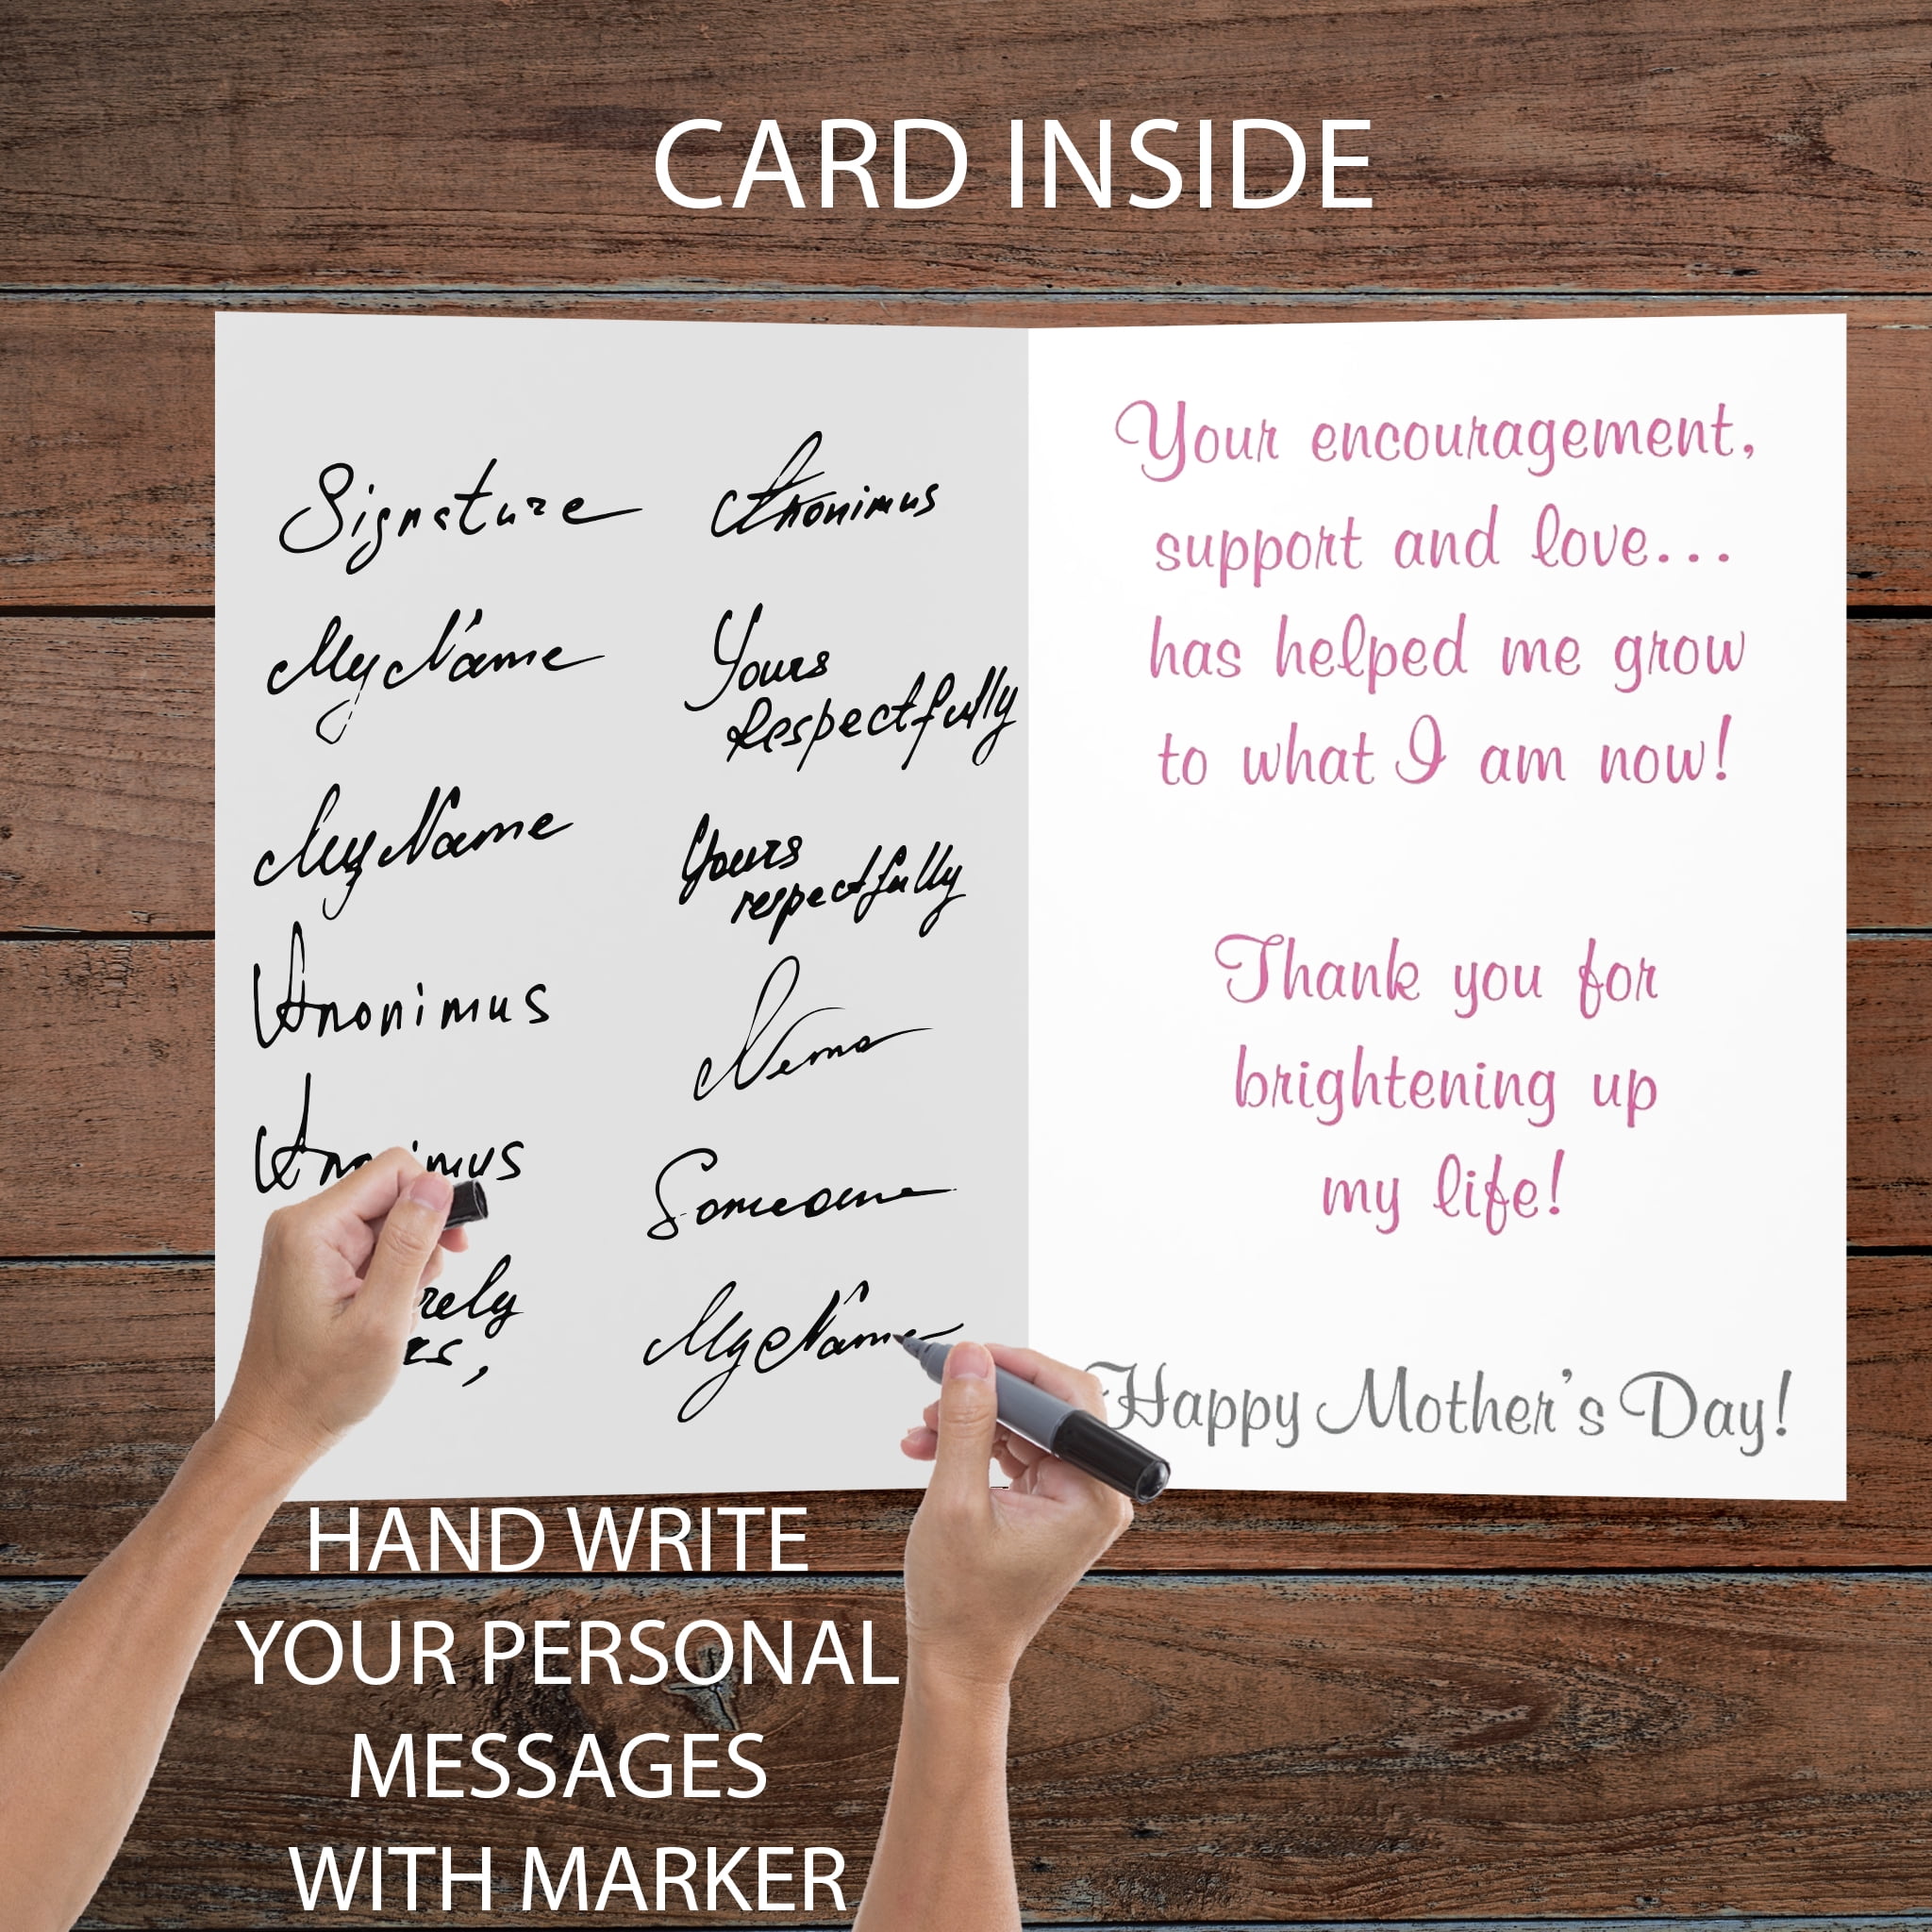 CARD INSIDE
Signature
My Name
My Name
Anonimus
Anonimus
Anonimus
Yours
Respectfully
Yours
respectfully
Nemo
Someone
My Name
Your encouragement,
support and love...
has helped me grow
to what I am now!
Thank you for
brightening up
my life!
Happy Mother's Day!
HAND WRITE
YOUR PERSONAL
MESSAGES
WITH MARKER